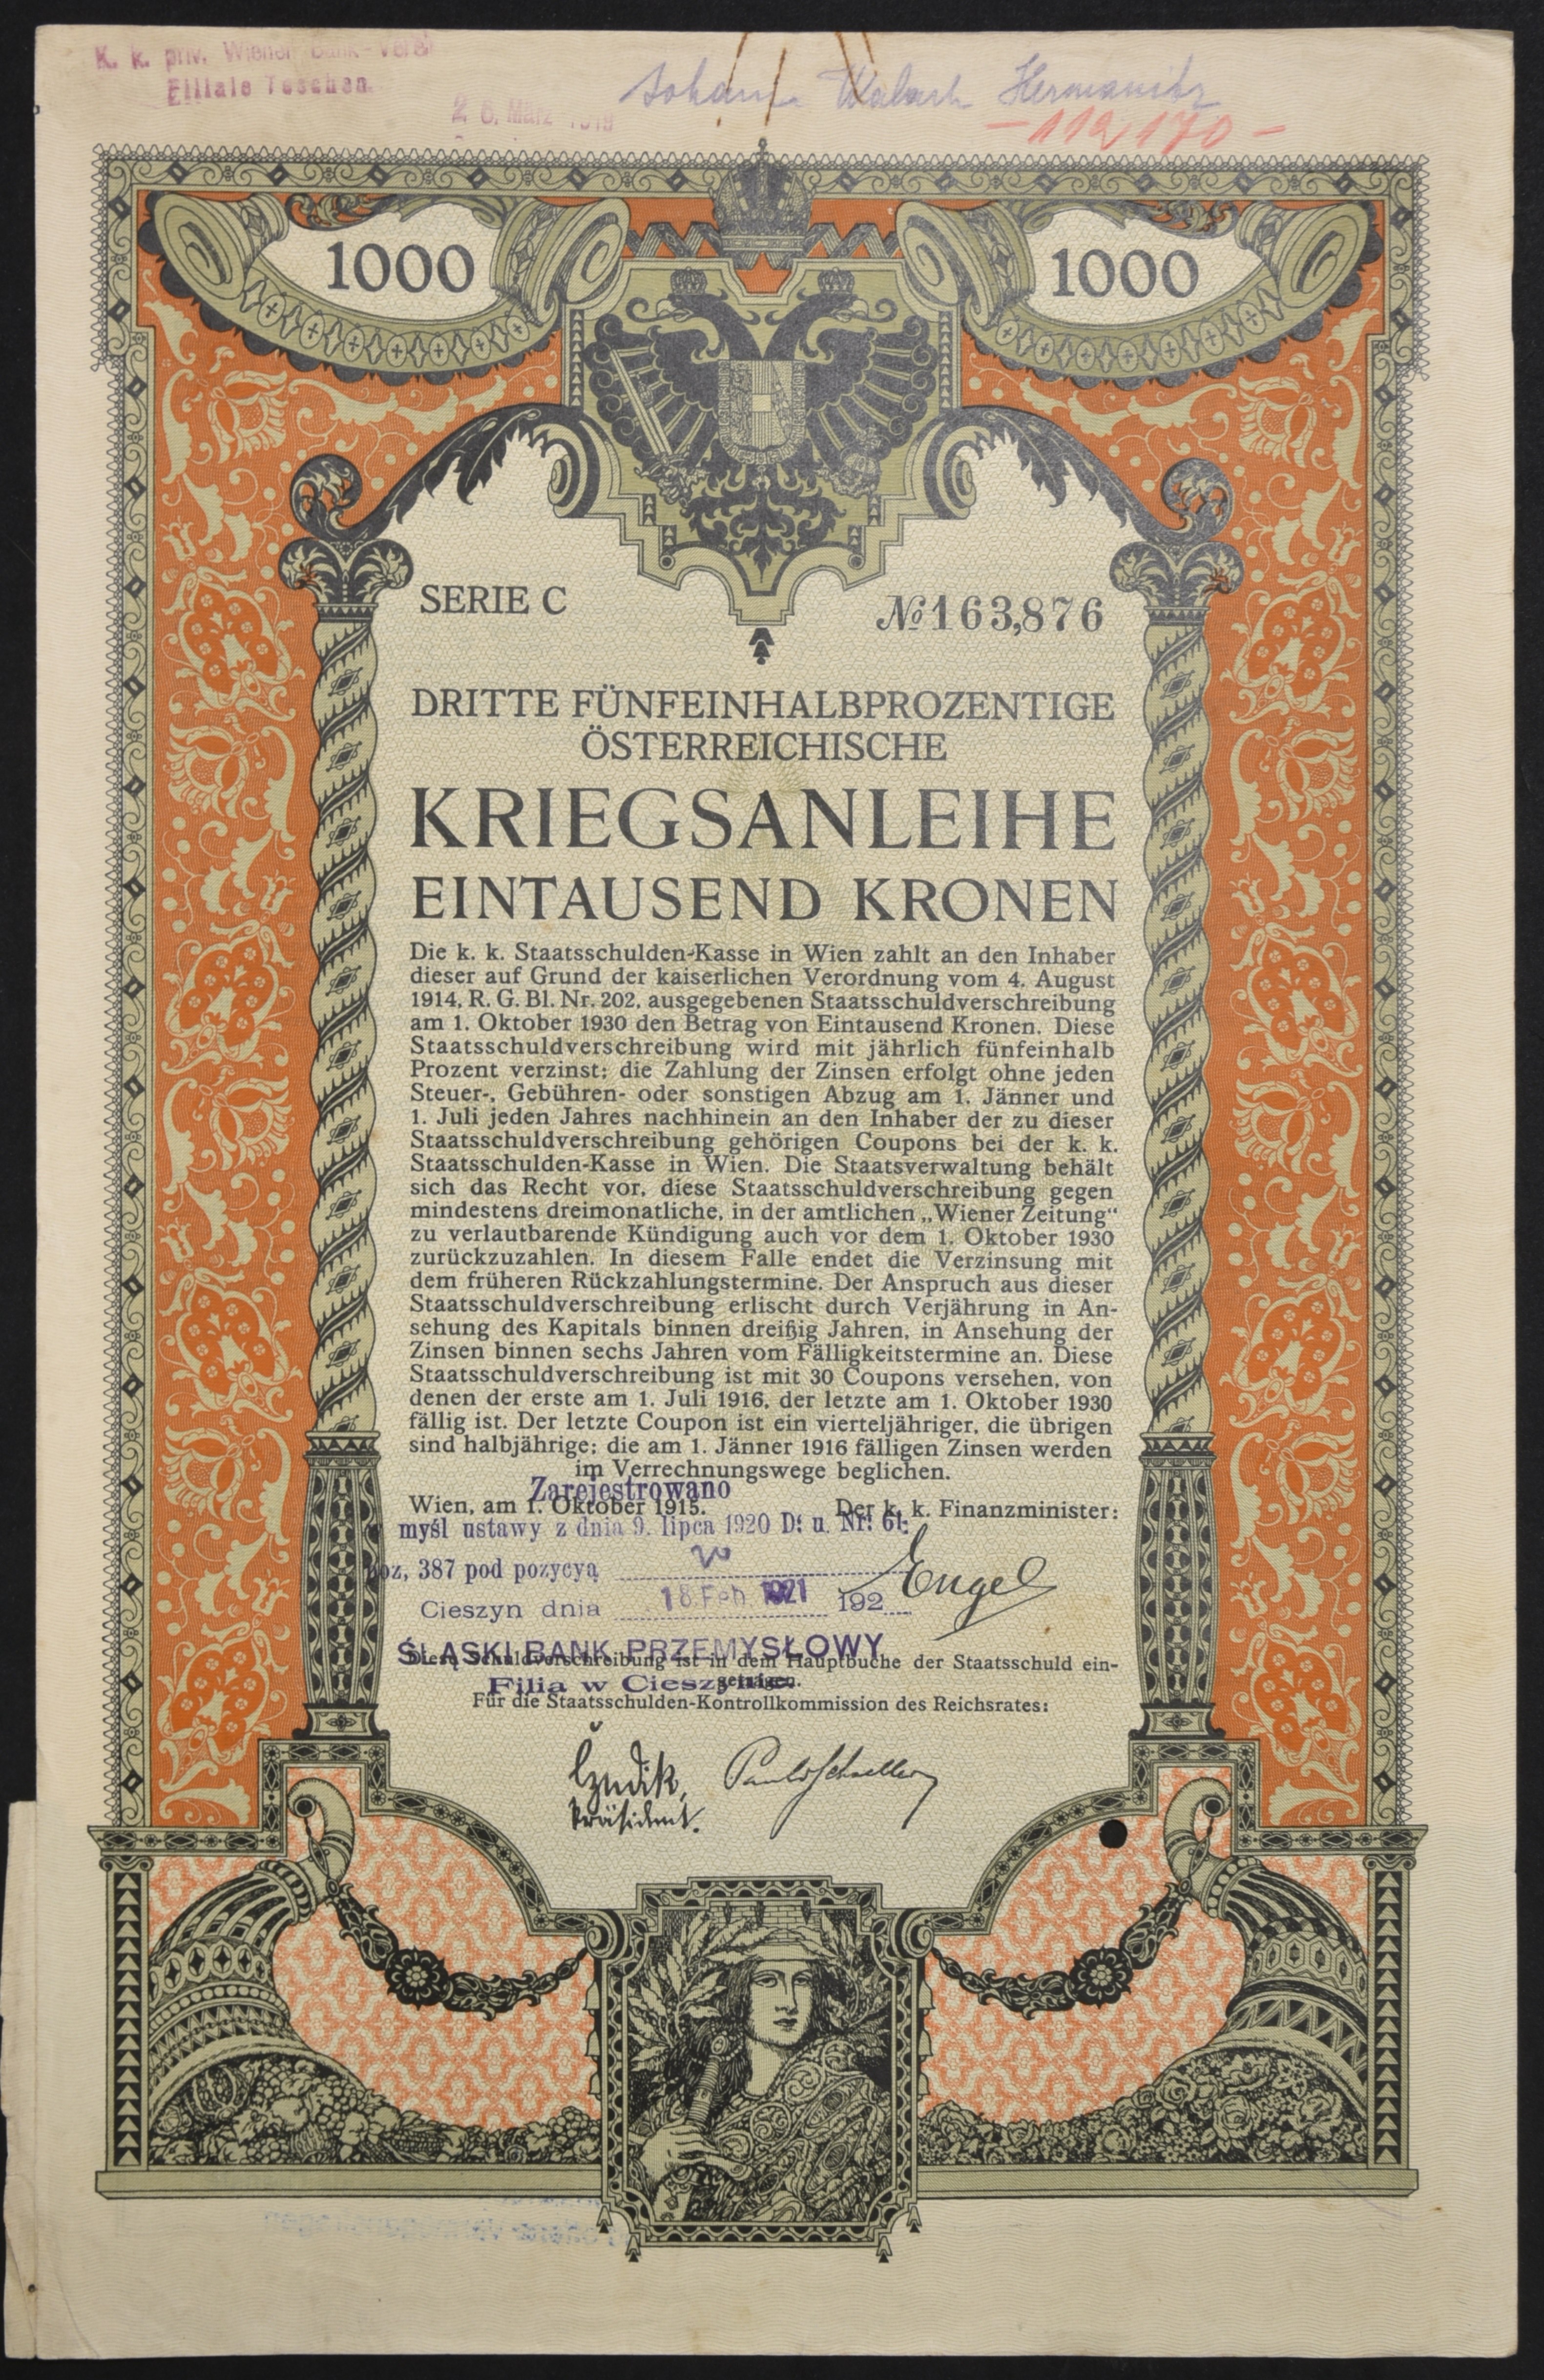 K. k. priv. Wiener Bank-Verein
Filiale Teschen
26. März 1919
Hermanitz
-112,170-
1000
1000
SERIE C
№163,876
DRITTE FÜNFEINHALBPROZENTIGE
ÖSTERREICHISCHE
KRIEGSANLEIHE
EINTAUSEND KRONEN
Die k. k. Staatsschulden-Kasse in Wien zahlt an den Inhaber
dieser auf Grund der kaiserlichen Verordnung vom 4. August
1914, R. G. Bl. Nr. 202, ausgegebenen Staatsschuldverschreibung
am 1. Oktober 1930 den Betrag von Eintausend Kronen. Diese
Staatsschuldverschreibung wird mit jährlich fünfeinhalb
Prozent verzinst; die Zahlung der Zinsen erfolgt ohne jeden
Steuer-, Gebühren- oder sonstigen Abzug am 1. Jänner und
1. Juli jeden Jahres nachhinein an den Inhaber der zu dieser
Staatsschuldverschreibung gehörigen Coupons bei der k. k.
Staatsschulden-Kasse in Wien. Die Staatsverwaltung behält
sich das Recht vor, diese Staatsschuldverschreibung gegen
mindestens dreimonatliche, in der amtlichen „Wiener Zeitung“
zu verlautbarende Kündigung auch vor dem 1. Oktober 1930
zurückzuzahlen. In diesem Falle endet die Verzinsung mit
dem früheren Rückzahlungstermine. Der Anspruch aus dieser
Staatsschuldverschreibung erlischt durch Verjährung in An-
sehung des Kapitals binnen dreißig Jahren, in Ansehung der
Zinsen binnen sechs Jahren vom Fälligkeitstermine an. Diese
Staatsschuldverschreibung ist mit 30 Coupons versehen, von
denen der erste am 1. Juli 1916, der letzte am 1. Oktober 1930
fällig ist. Der letzte Coupon ist ein vierteljähriger, die übrigen
sind halbjährige; die am 1. Jänner 1916 fälligen Zinsen werden
im Verrechnungswege beglichen.
Zarejestrowano
Wien, am 1. Oktober 1915. Der k. k. Finanzminister:
myśl ustawy z dnia 9. lipca 1920 D: u. Nr: 61:
poz, 387 pod pozycyą
Engel
Cieszyn dnia 18. Feb. 1921 192
ŚLĄSKI BANK PRZEMYSŁOWY
Diese Schuldverschreibung ist in dem Hauptbuche der Staatsschuld ein-
getragen.
Filia w Cieszynie
Für die Staatsschulden-Kontrollkommission des Reichsrates:
Präsident.